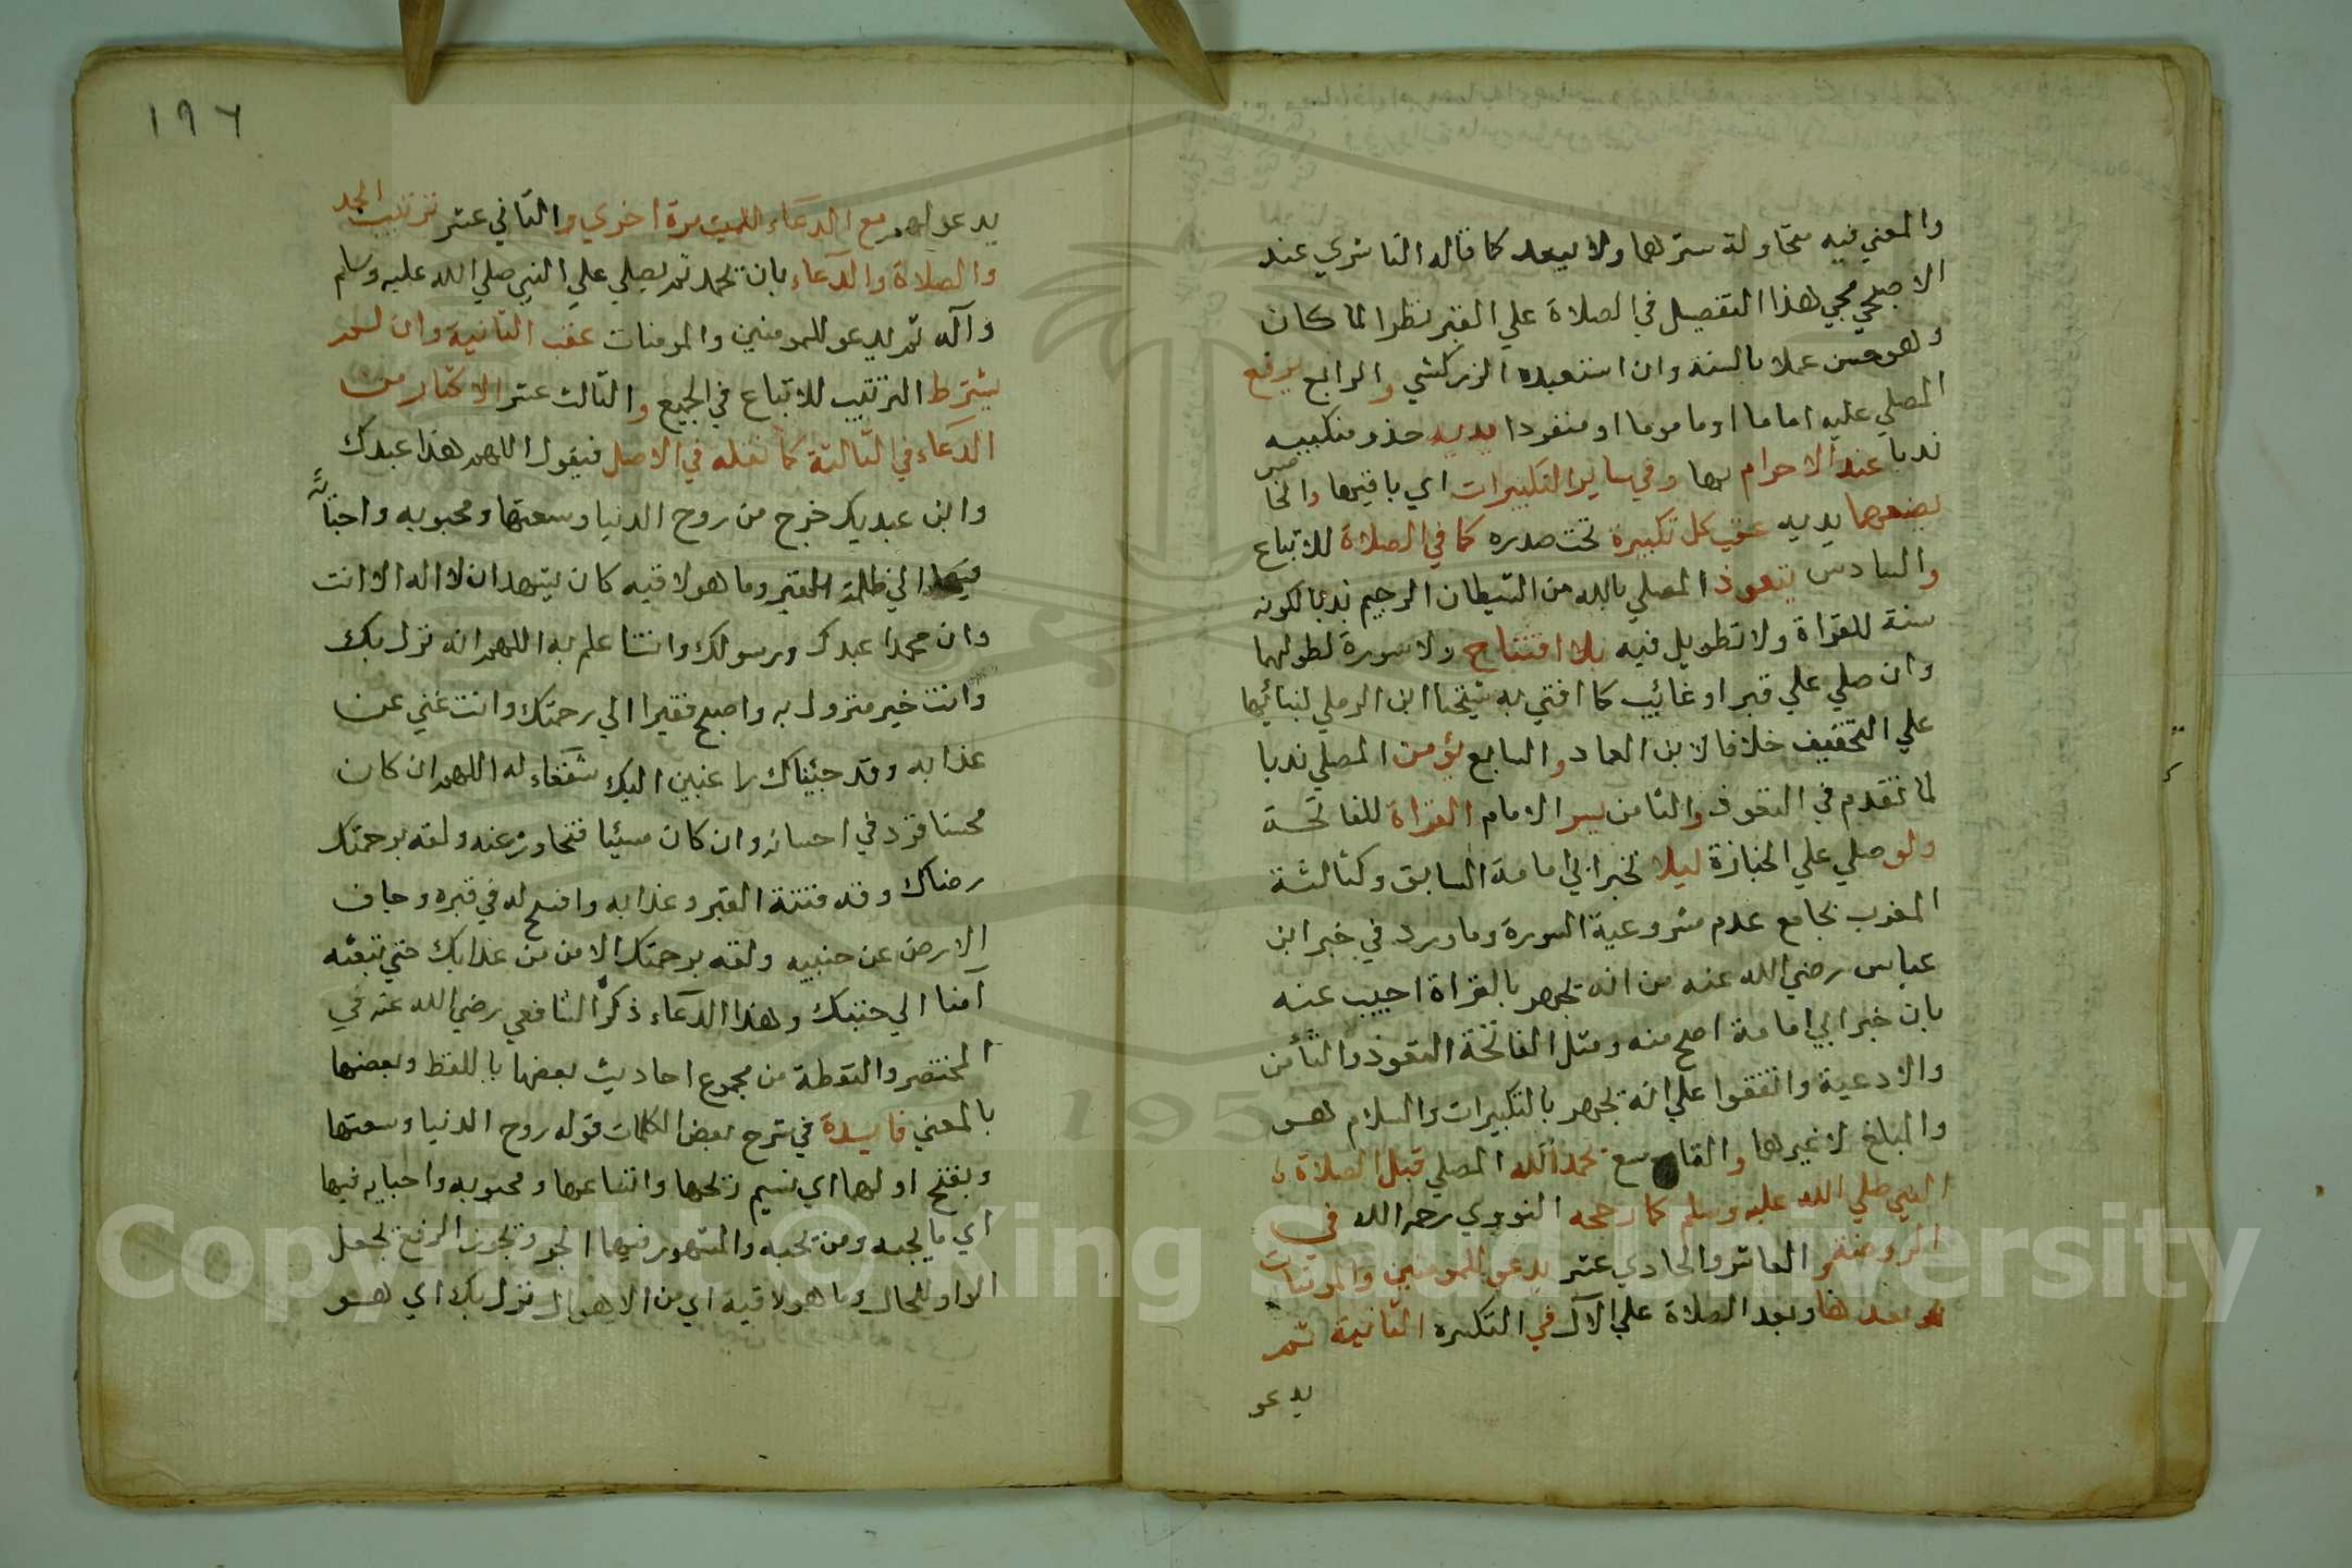 والمعني فيه محاولة سترها ولا يبعد كما قاله الناشري عند
الاصبحي مجي هذا التفصيل في الصلاة علي القبر نظرا لما كان
وهو حسن عملا بالسنة وان استبعده الزركشي والرابع يرفع
المصلي عليه اماما اوماموما او منفردا يديه حذو منكبيه
ندبا عند الاحرام بها وفي ساير التكبيرات اي باقيها والخامس
يضعهما يديه عقب كل تكبيرة تحت صدره كما في الصلاة للاتباع
والسادس يتعوذ المصلي بالله من الشيطان الرجيم ندبا لكونه
سنة للقراة ولا تطويل فيه بلا افتتاح ولا سورة لطولهما
وان صلي علي قبر او غائب كما افتي به شيخنا ابن الرملي لبنائها
علي التخفيف خلافا لابن العماد والسابع يؤمن المصلي ندبا
لما تقدم في التعوذ والثامن يسر الامام القراة للفاتحة
ولو صلي علي الجنازة ليلا لخبر ابي امامة السابق وكثالثة
المغرب بجامع عدم مشروعية السورة وما ورد في خبر ابن
عباس رضي الله عنه من انه جهر بالقراة اجيب عنه
بان خبر ابي امامة اصح منه ومثل الفاتحة التعوذ والتأمن
والادعية واتفقوا علي انه يجهر بالتكبيرات والسلام هو
والمبلغ لا غيرها والتاسع يحمد الله المصلي قبل الصلاة
النبي صلي الله عليه وسلم كما رجحه النووي رحمه الله في
الروضة والعاشر والحادي عشر يدعو للمومنين والمومنات
بعدها وبعد الصلاة علي الآل في التكبيره الثانية ثم
يدعو
١٩٦
يدعو لهم مع الدعاء للميت مرة اخري والثاني عشر ترتيب الحمد
والصلاة والدعاء بان يحمد ثم يصلي علي النبي صلي الله عليه وسلم
وآله ثم يدعو للمومنين والمومنات عقب الثانية وان لم
يشترط الترتيب للاتباع في الجميع والثالث عشر الاكثار من
الدعاء في الثالثة كما نقله في الاصل فيقول اللهم هذا عبدك
وابن عبديك خرج من روح الدنيا وسعتها ومحبوبه واحبائه
فيها الي ظلمة القبر وما هو لاقيه كان يشهد ان لا اله الا انت
وان محمدا عبدك ورسولك وانت اعلم به اللهم انه نزل بك
وانت خير منزول به واصبح فقيرا الي رحمتك وانت غني عن
عذابه وقد جئناك راغبين اليك شفعاء له اللهم ان كان
محسنا فزد في احسانه وان كان مسيئا فتجاوز عنه ولقه برحمتك
رضاك وقه فتنة القبر وعذابه وافسح له في قبره وجاف
الارض عن جنبيه ولقه برحمتك الامن من عذابك حتي تبعثه
آمنا الي جنتك وهذا الدعاء ذكره الشافعي رضي الله عنه في
المختصر والتقطه من مجموع احاديث بعضها باللفظ وبعضها
بالمعني فايدة في شرح بعض الكلمات قوله روح الدنيا وسعتها
وبفتح اولهما اي نسيم ريحها واتساعها ومحبوبه واحبايه فيها
اي ما يحبه ومن يحبه والمشهور فيها الجر ويجوز الرفع بجعل
الواو للحال وما هو لاقيه اي من الاهوال نزل بك اي هو